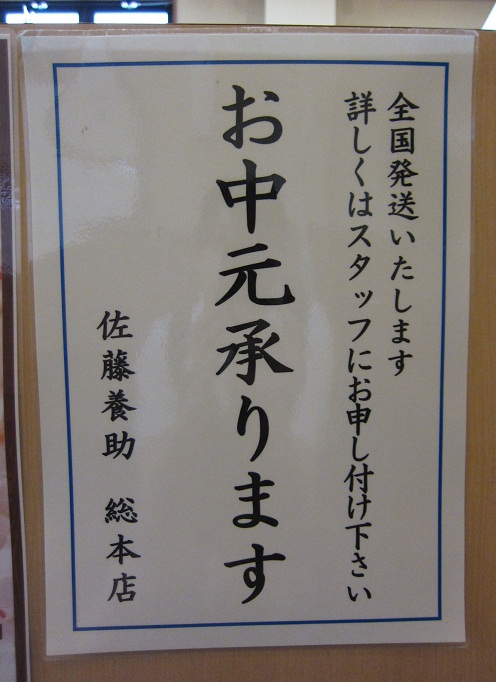 全国発送いたします
詳しくはスタッフにお申し付け下さい
お中元承ります
佐藤養助 総本店